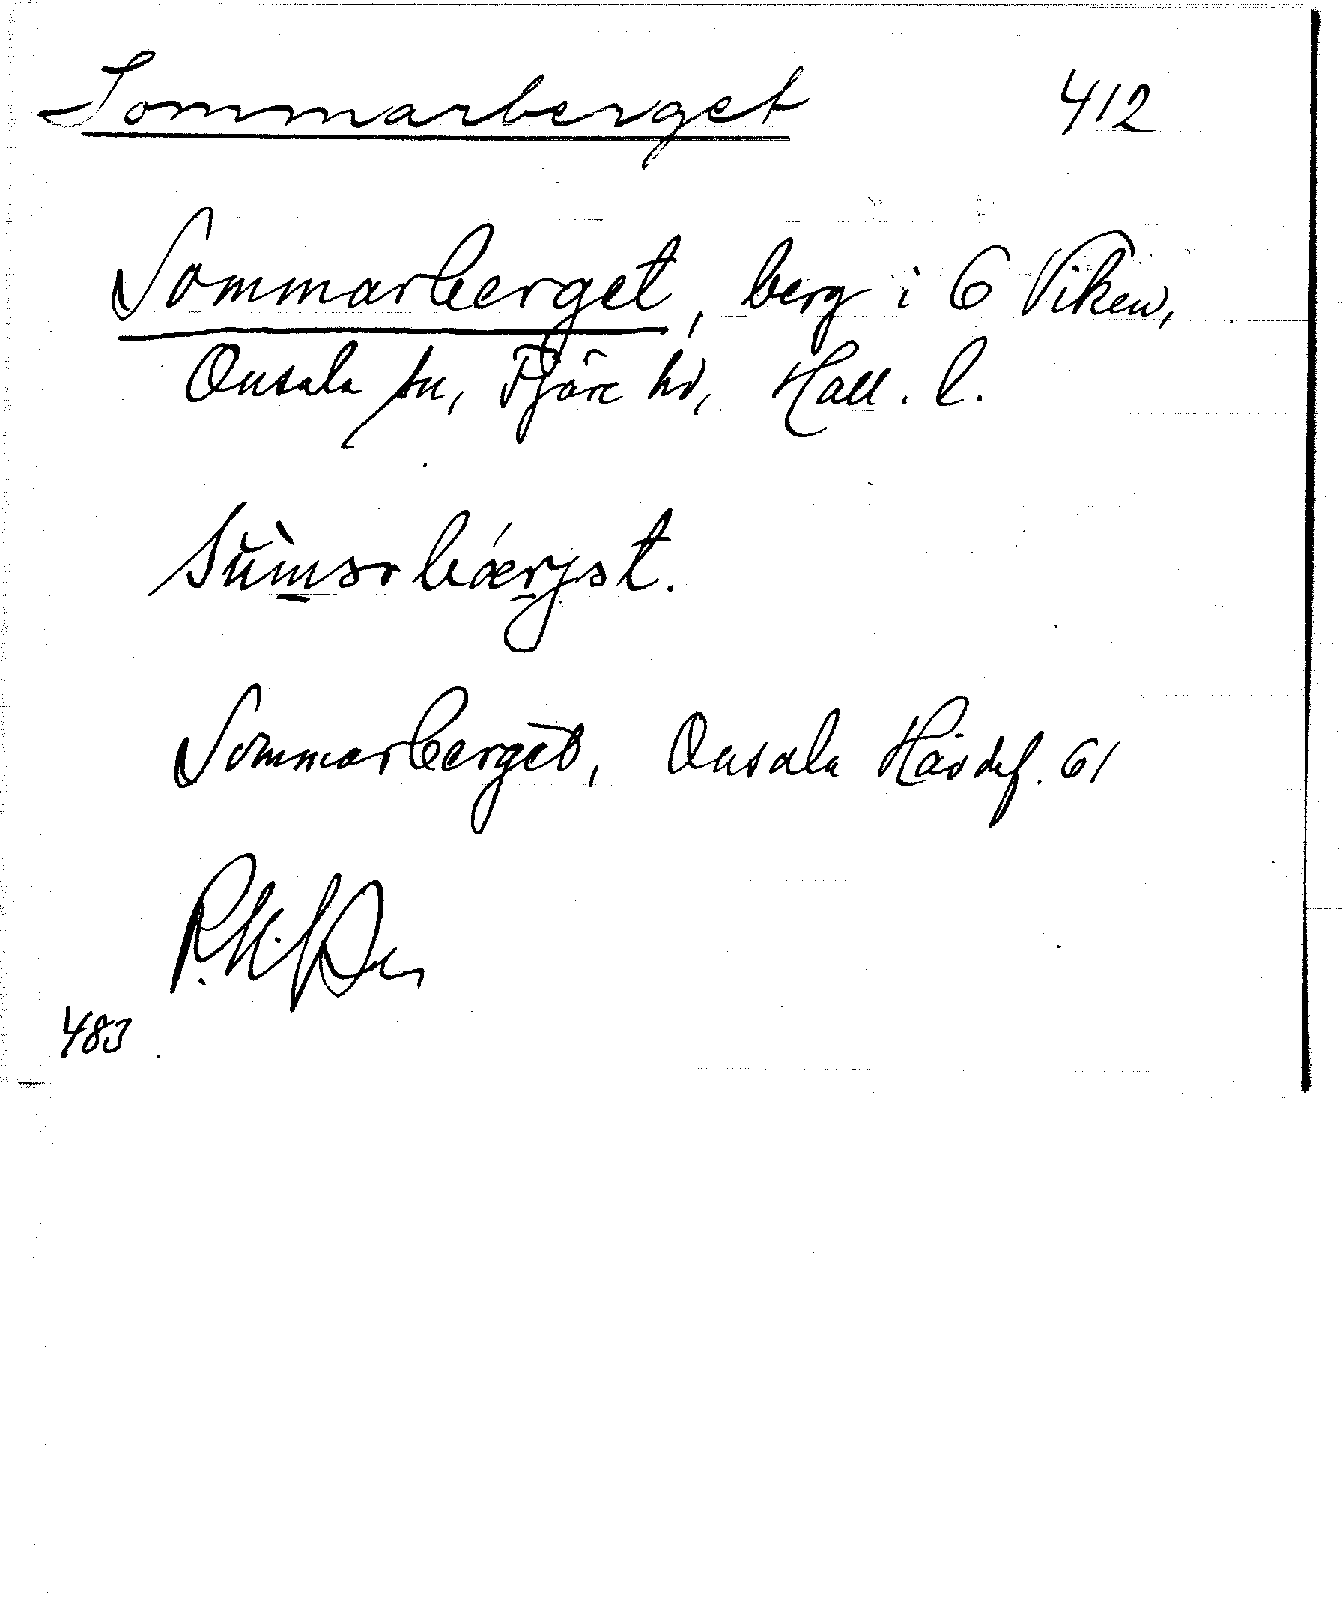 Sommarberget 412
Sommarberget, berg i 6 Viken,
Onsala sn, Fjäre hd, Hall. l.
Sommarberget, Onsala Hävdef. 61
483